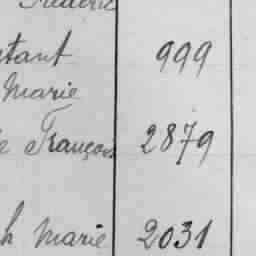 Frédéric
tant 999
Marie
François 2879
h Marie 2031